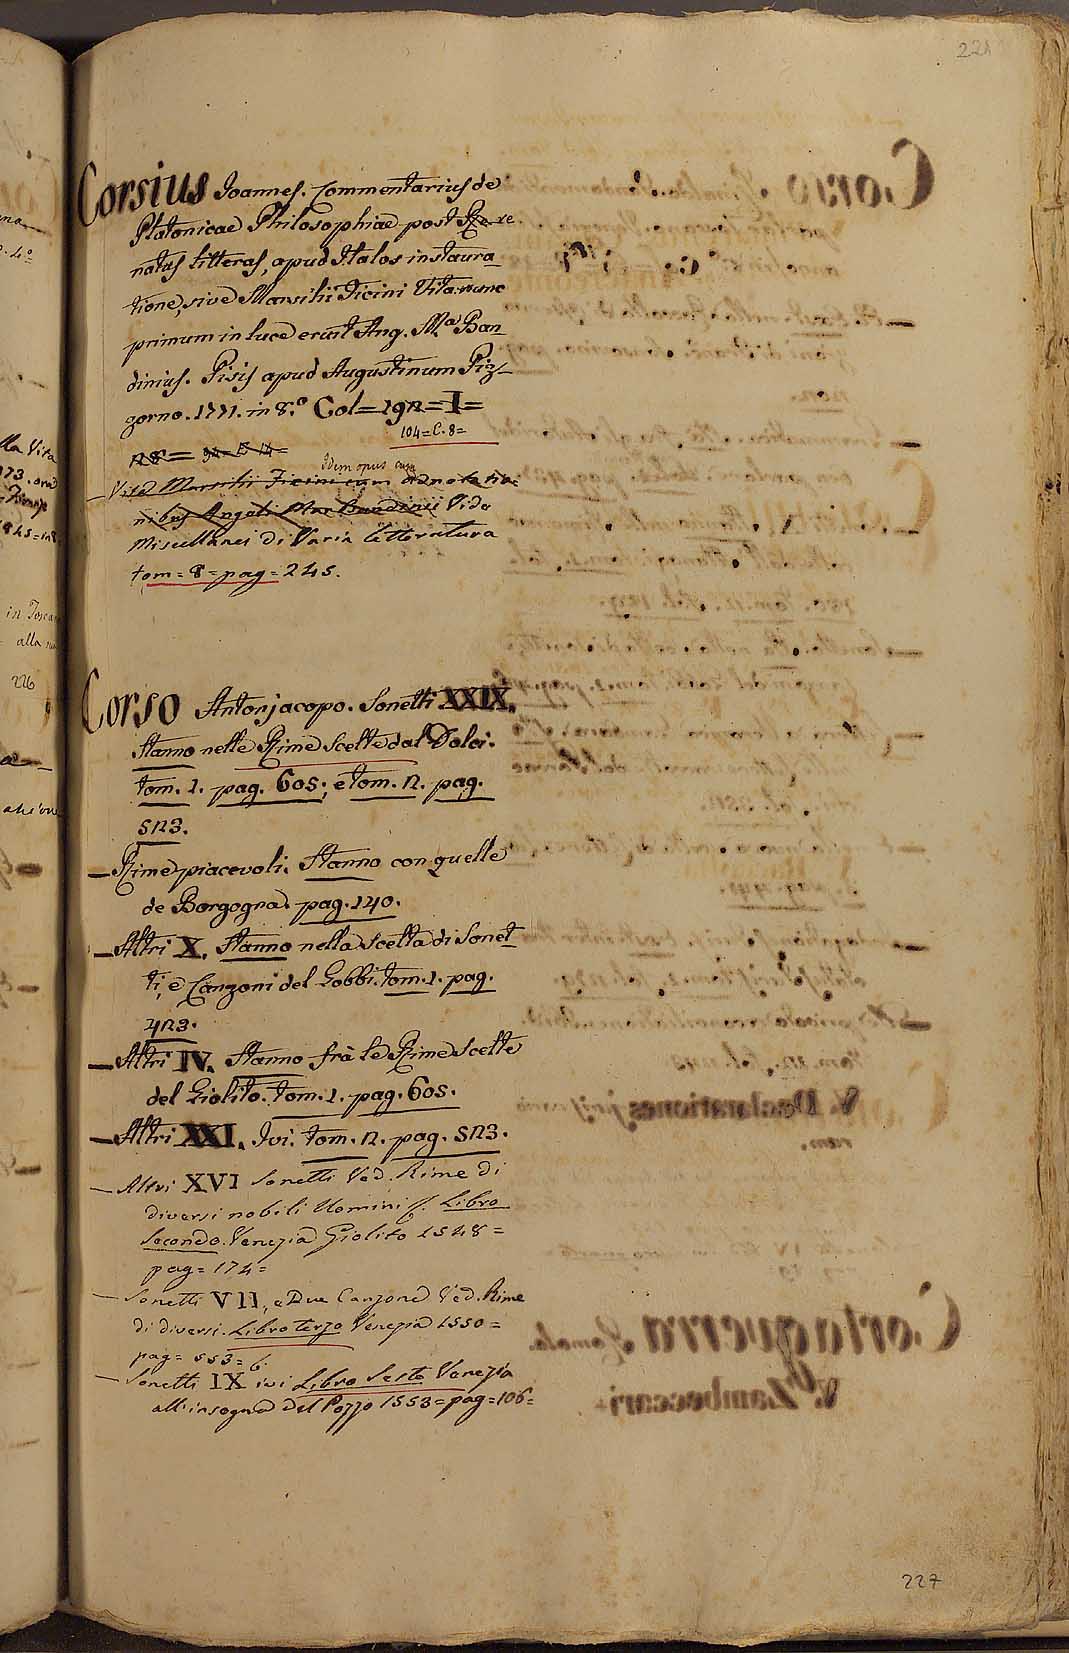 221
Corsius Joannes. Commentarius de
Platonicae Philosophiae post re
natas litteras, apud Italos instaura
tione, sive Marsilii Ficini Vita nunc
primum in luce eruit Ang. M.ª Ban
dinius. Pisis apud Augustinum Piz
zorno. 1771. in 8.º Col=192=I=
28= 94=15 14= 104=C.8=
Idem opus cum
— Vita Marsilii Ficini cum adnotatio
nibus Angeli Mar Bandinii Vide
Miscellanei di Varia letteratura
tom=8=pag=245.
Corso Antonjacopo. Sonetti XXIX.
Stanno nelle Rime Scelte dal Dolci.
tom. 1. pag. 605; e tom. 2. pag.
523.
— Rime piacevoli. Stanno con quelle
de Borgogna. pag. 140.
— Altri X. Stanno nella Scelta di Sonet
ti, e Canzoni del Gobbi. tom. 1. pag.
423.
— Altri IV. Stanno frà le Rime Scelte
del Giolito. tom. 1. pag. 605.
— Altri XXI. Ivi. tom. 2. pag. 523.
— Altri XVI Sonetti Ved. Rime di
diversi nobili Uomini Libro
Secondo. Venezia Giolito 1548=
pag=174=
— Sonetti VII, e Due Canzone Ved. Rime
di diversi. Libro terzo Venezia 1550=
pag=553=6.
— Sonetti IX ivi Libro Sesto Venezia
all'insegna del Pozzo 1553=pag=106=
227